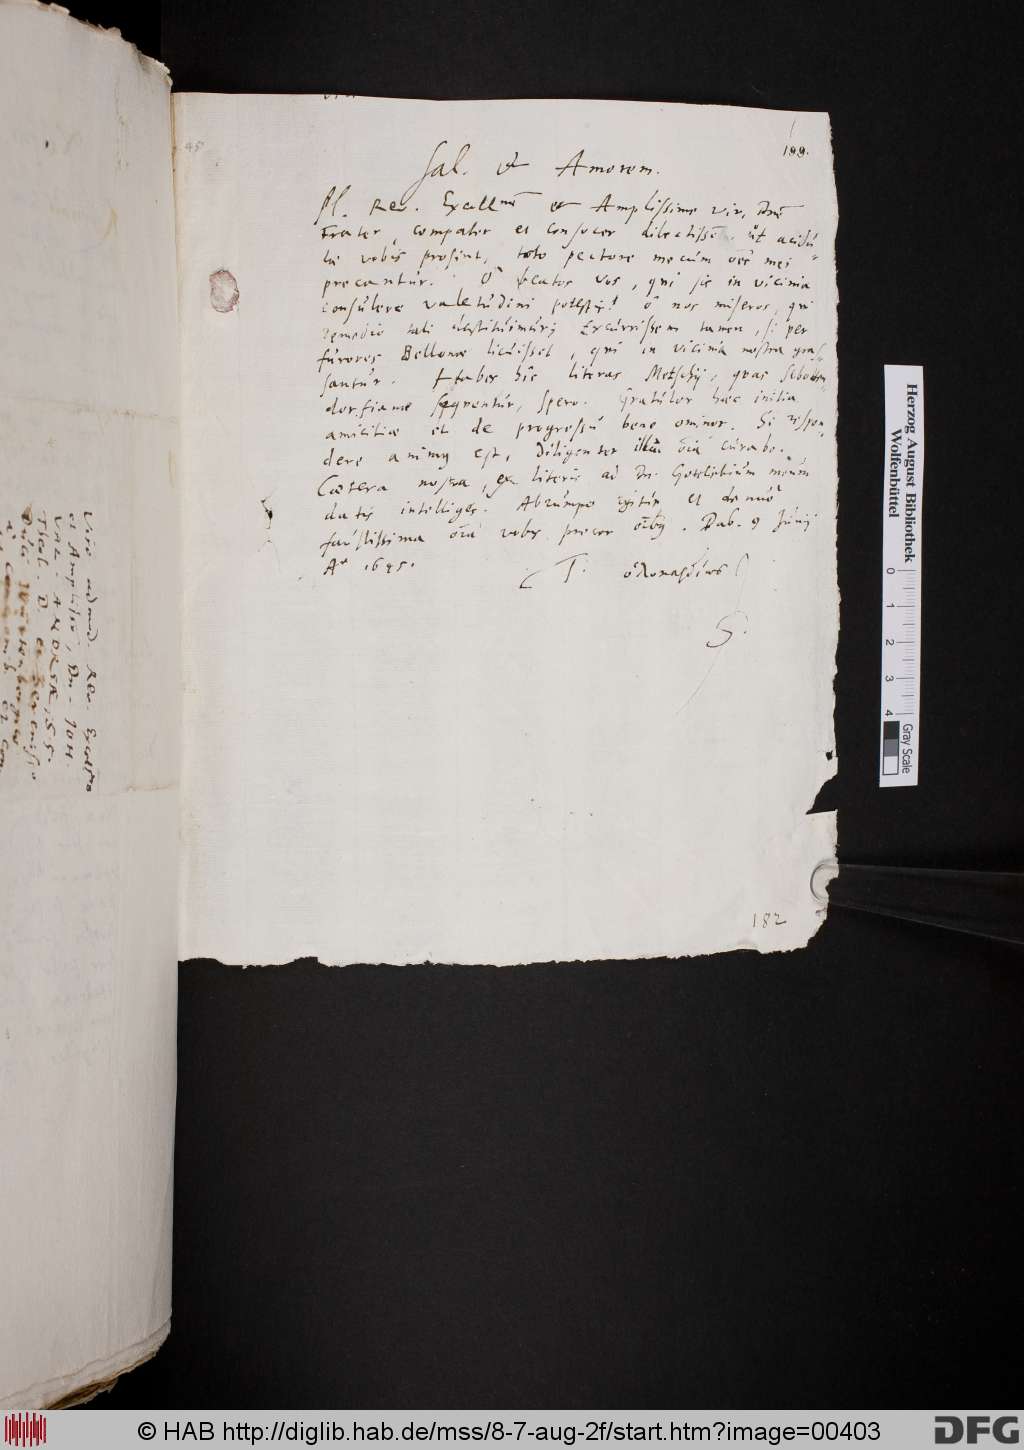 45
188.
Sal. et Amorem.
Pl. Rev. Excellme et Amplissime vir, Dne
Frater, compater et consocer dilectiss. ut acidu-
lae vobis prosint, toto pectore mecum oes mei
precantur. O beatos vos, qui sic in vicinia
consulere valetudini potestis! o nos miseros, qui
remedio tali destituimur; Excurrissem tamen, si per
furores Bellonae licuisset, qui in vicinia nostra gras-
santur. Habes hic literas Metschij, quas
dorfianae spero. Gratulor haec initia
amicitiae et de progressu bene ominor. Si respon-
dere animus est, diligenter oia curabo.
Caetera nostra, ex literis ad Dn. Gotelibium meum
datis intelliges. Abrumpo et denuo
faustissima oia vobis precor oibus. Dab. 9 Junij
Ao 1645.
T.
S.
182
Viro admod. Rev. Excellmo
et Amplissо, Dn. JOH.
VAL. ANDREAE, SS.
Theol. D.
Herzog August Bibliothek
Wolfenbüttel
0 1 2 3 4
Gray Scale
© HAB http://diglib.hab.de/mss/8-7-aug-2f/start.htm?image=00403
DFG